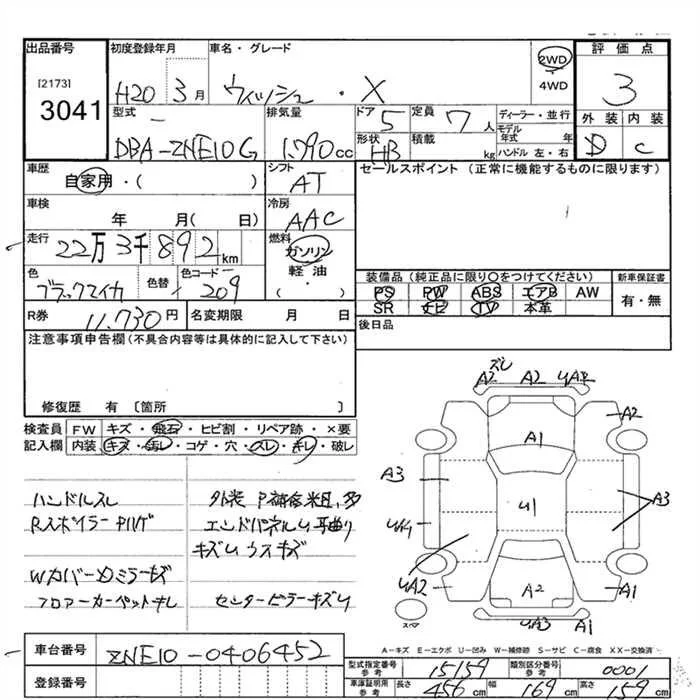 出品番号 初度登録年月 車名・グレード 評価点
[2173] 3041
H20 3月 ウィッシュ ・ X 2WD ・ 4WD 3
型式 排気量 ドア 5 定員 7人 ディーラー・並行 外装 内装
DBA-ZNE10G 1.790cc 形状 HB 積載 kg モデル年式 年 ハンドル 左・右 D C
車歴 自家用・( ) シフト AT セールスポイント (正常に機能するものに限ります)
車検 年 月( 日) 冷房 AAC
走行 22万3千892km 燃料 ガソリン・軽油・( )
色 ブラックマイカ 色替 色コード 209
装備品 (純正品に限り〇をつけてください) 新車保証書
PS PW ABS エアB AW 有・無
SR ナビ TV 本革
R券 11.730円 名変期限 月 日 後日品
注意事項申告欄(不具合内容等は具体的に記入して下さい)
修復歴 有 〔箇所 〕
検査員記入欄 FW キズ・飛石・ヒビ割・リペア跡・×要
内装 キズ・汚レ・コゲ・穴・スレ・キレ・破レ
ハンドルスレ
Rスポイラー
Wカバー ミラーキズ
フロアーカーペットキレ
外装
エンドパネルU 耳曲り
キズU ウスキズ
センターピラーキズU
ズレ
A2 A2
A2
A1
A3 A3
U1
UA2 A2 A1
UA3 A1
スペア
A-キズ E-エクボ U-凹み W-補修跡 S-サビ C-腐食 XX-交換済
車台番号 ZNE10-0406452
登録番号
型式指定番号 参考 15159 類別区分番号 参考 0001
車庫証明用 参考 長さ 456cm 幅 169cm 高さ 159cm